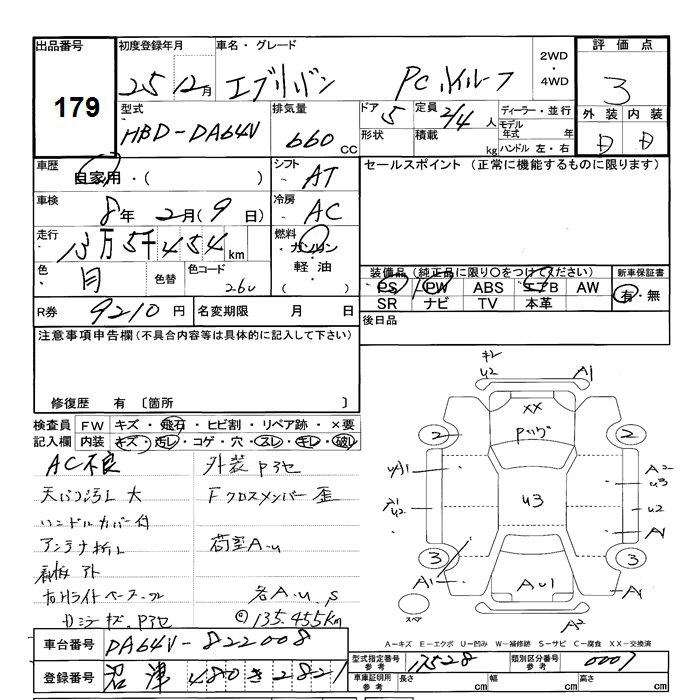 出品番号 初度登録年月 車名・グレード 2WD・4WD 評価点
179 25 12月 エブリバン PCハイルーフ 3
型式 排気量 ドア 定員 ディーラー・並行 外装 内装
HBD-DA64V 660 CC 5 2/4人 モデル年式 年 D D
形状 積載 kg ハンドル 左・右
車歴 自家用・( ) シフト AT セールスポイント (正常に機能するものに限ります)
車検 8年 2月(9日) 冷房 AC
走行 13万5千454km 燃料 ガソリン・軽油・( )
色 色替 色コード 26U 装備品 (純正品に限り○をつけてください) 新車保証書
PS PW ABS エアB AW 有・無
SR ナビ TV 本革
R券 9210円 名変期限 月 日 後日品
注意事項申告欄(不具合内容等は具体的に記入して下さい)
修復歴 有 〔箇所 〕
検査員 FW キズ・飛石・ヒビ割・リペア跡・×要
記入欄 内装 キズ・汚レ・コゲ・穴・スレ・キレ・破レ
AC不良 外装
大 Fクロスメンバー歪
ハンドルカバー付
アンテナ 荷室A.U
各A.U.S
135.455km
キズ
車台番号 DA64V-822008
登録番号 沼津 480 き 2821
U2 A1
XX
2 2
UA1 A2
U3
A1 U2 U3 U2
A1
3 3
A1 AU1 A1
スペア A2
A-キズ E-エクボ U-凹み W-補修跡 S-サビ C-腐食 XX-交換済
型式指定番号 参考 17528 類別区分番号 参考 0007
車庫証明用 参考 長さ cm 幅 cm 高さ cm